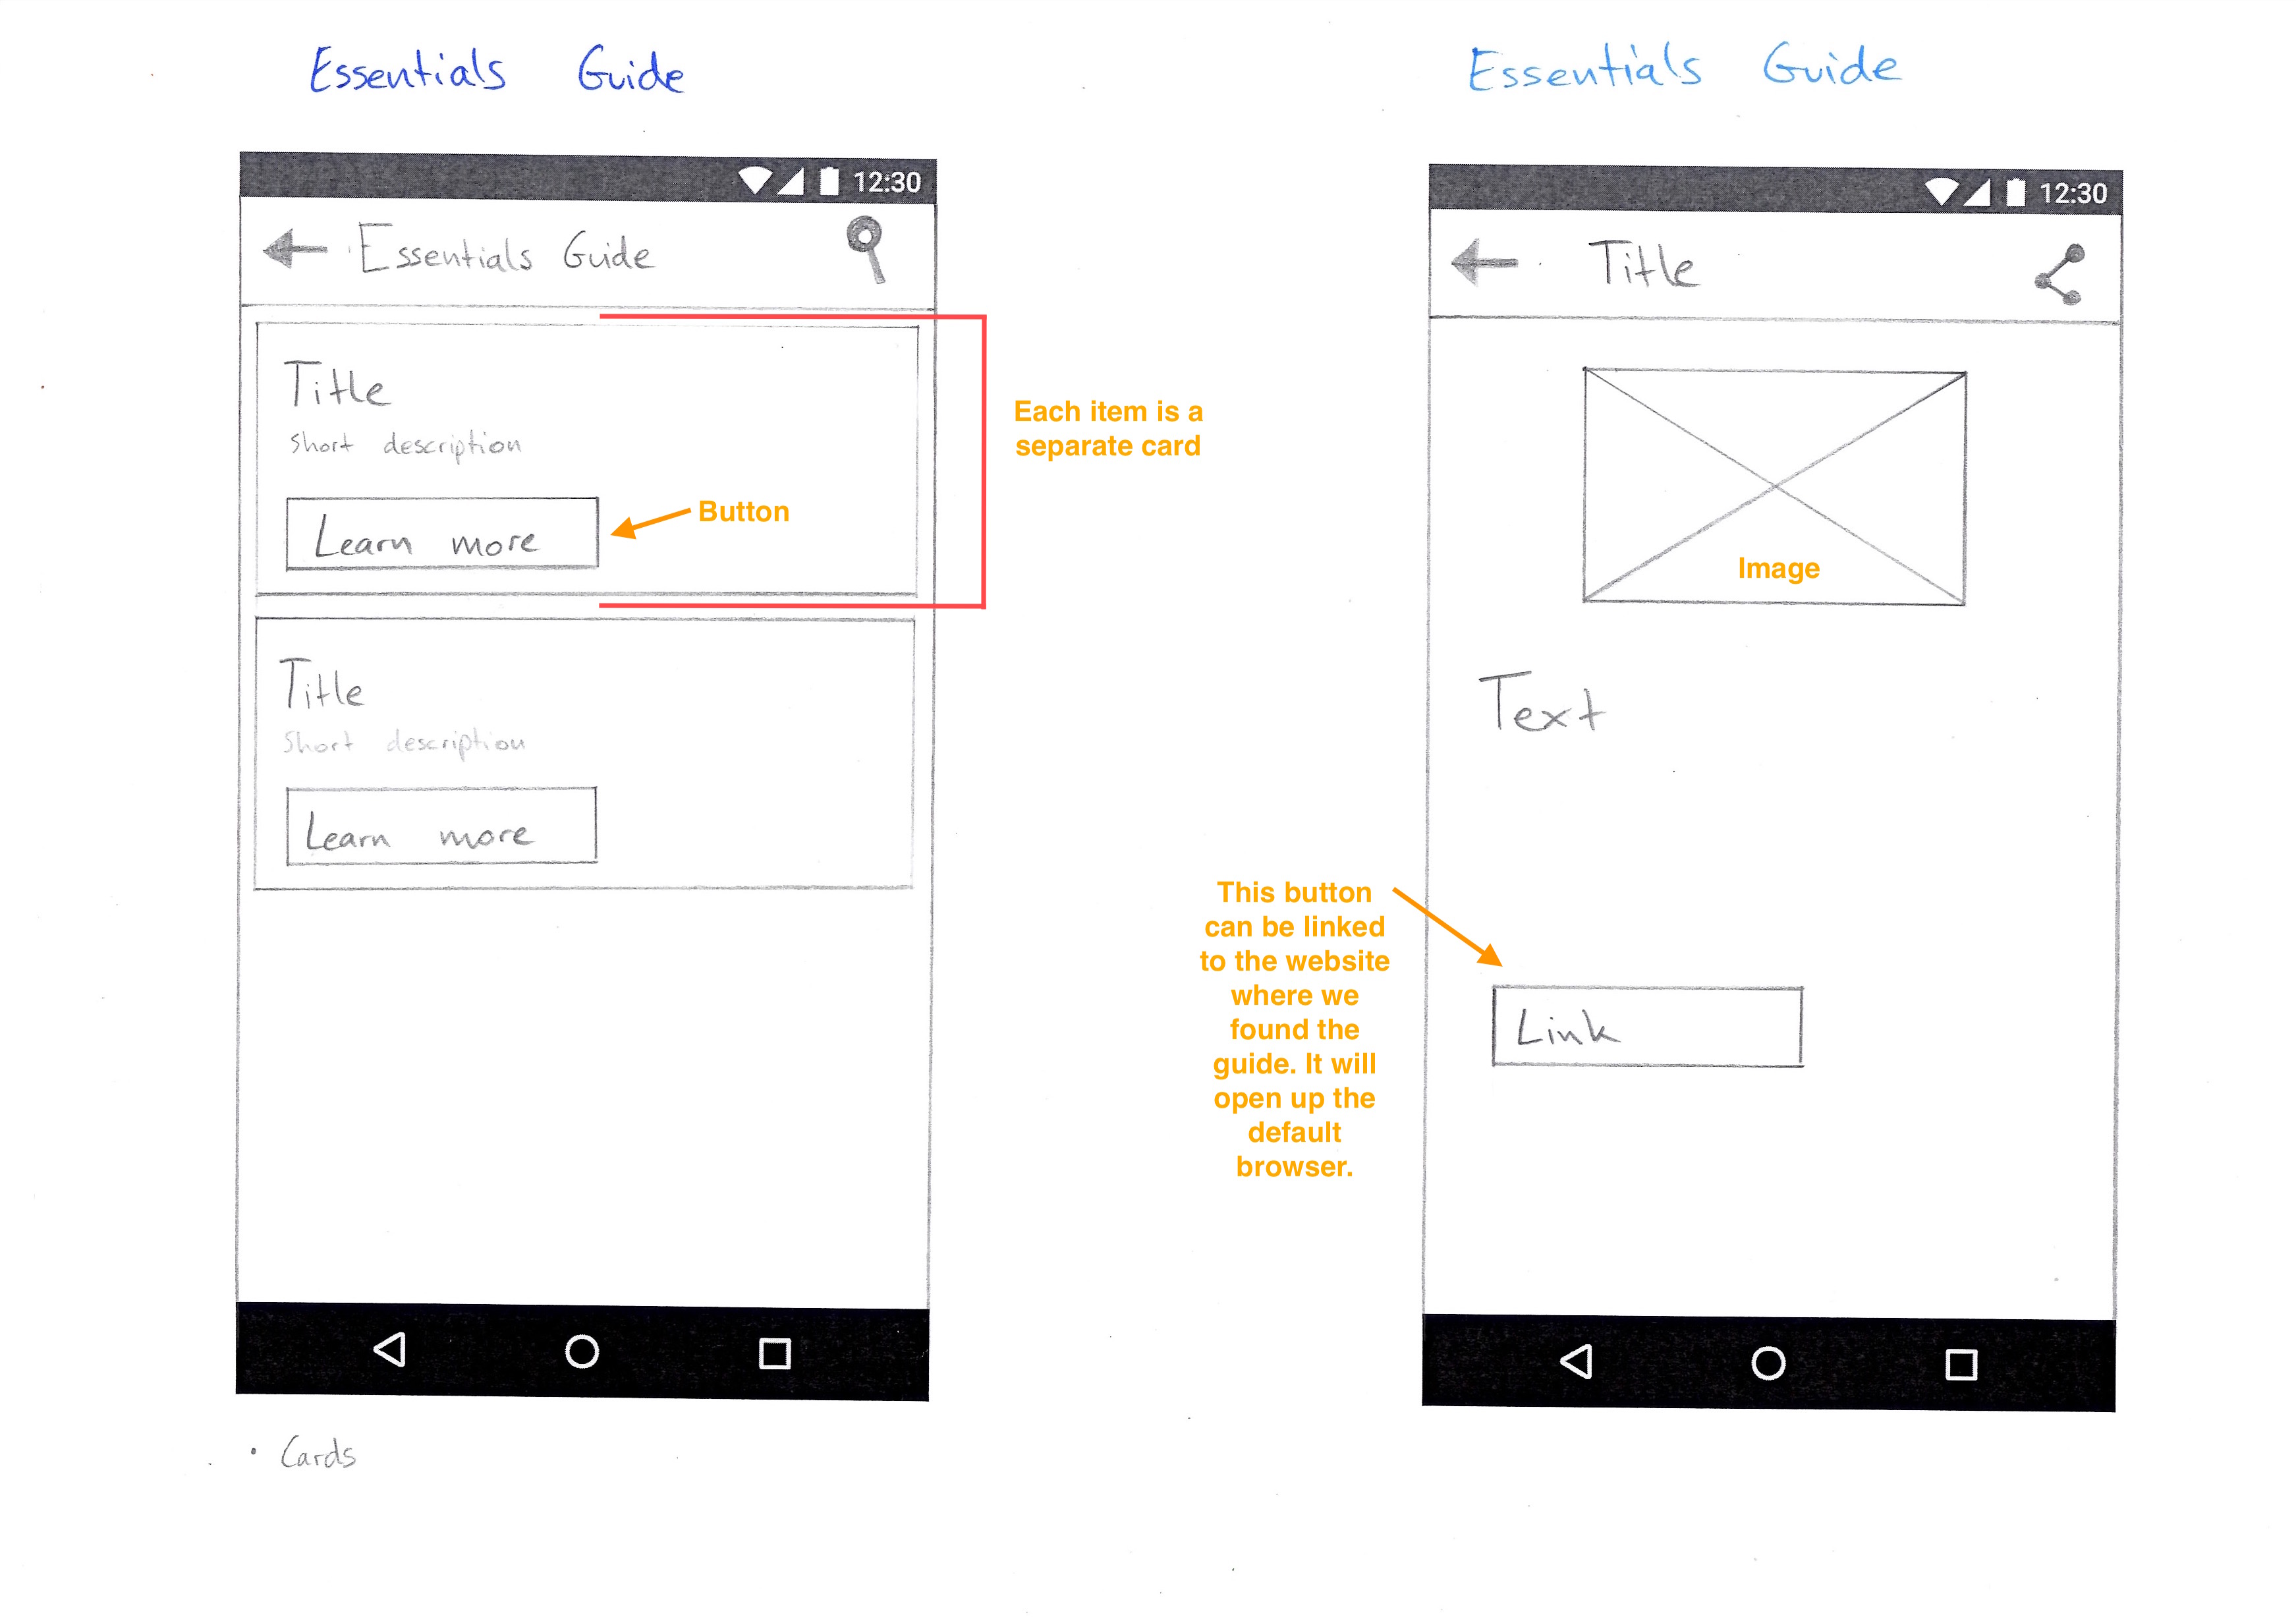 Essentials Guide
12:30
Essentials Guide
Title
short description
Learn more
Button
Each item is a
separate card
Title
short description
Learn more
• Cards
Essentials Guide
12:30
Title
Image
Text
This button
can be linked
to the website
where we
found the
guide. It will
open up the
default
browser.
Link